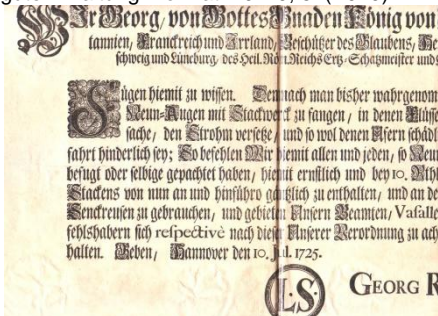 Wir Georg, von Gottes Gnaden König von
tannien, Franckreich und Irrland, Beschützer des Glaubens,
schweig und Lüneburg, des Heil. Röm. Reichs Ertz-Schatzmeister und
Fügen hiemit zu wissen. Demnach man bisher wahrgenom
Neun-Augen mit Stackwerck zu fangen, in denen Flüsse
sache, den Strohm versetze, und so wol denen Ufern schädl
fahrt hinderlich sey; So befehlen Wir hiemit allen und jeden, so Neun
befugt oder selbige gepachtet haben, hiemit ernstlich und bey 10. Rthl
Stackens von nun an und hinführo gäntzlich zu enthalten, und an de
Senckreusen zu gebrauchen, und gebieten Unsern Beamten, Vasalle
fehlshabern sich respectivè nach dieser Unserer Verordnung zu ach
halten. Geben, Hannover den 10. Jul. 1725.
L.S
GEORG R